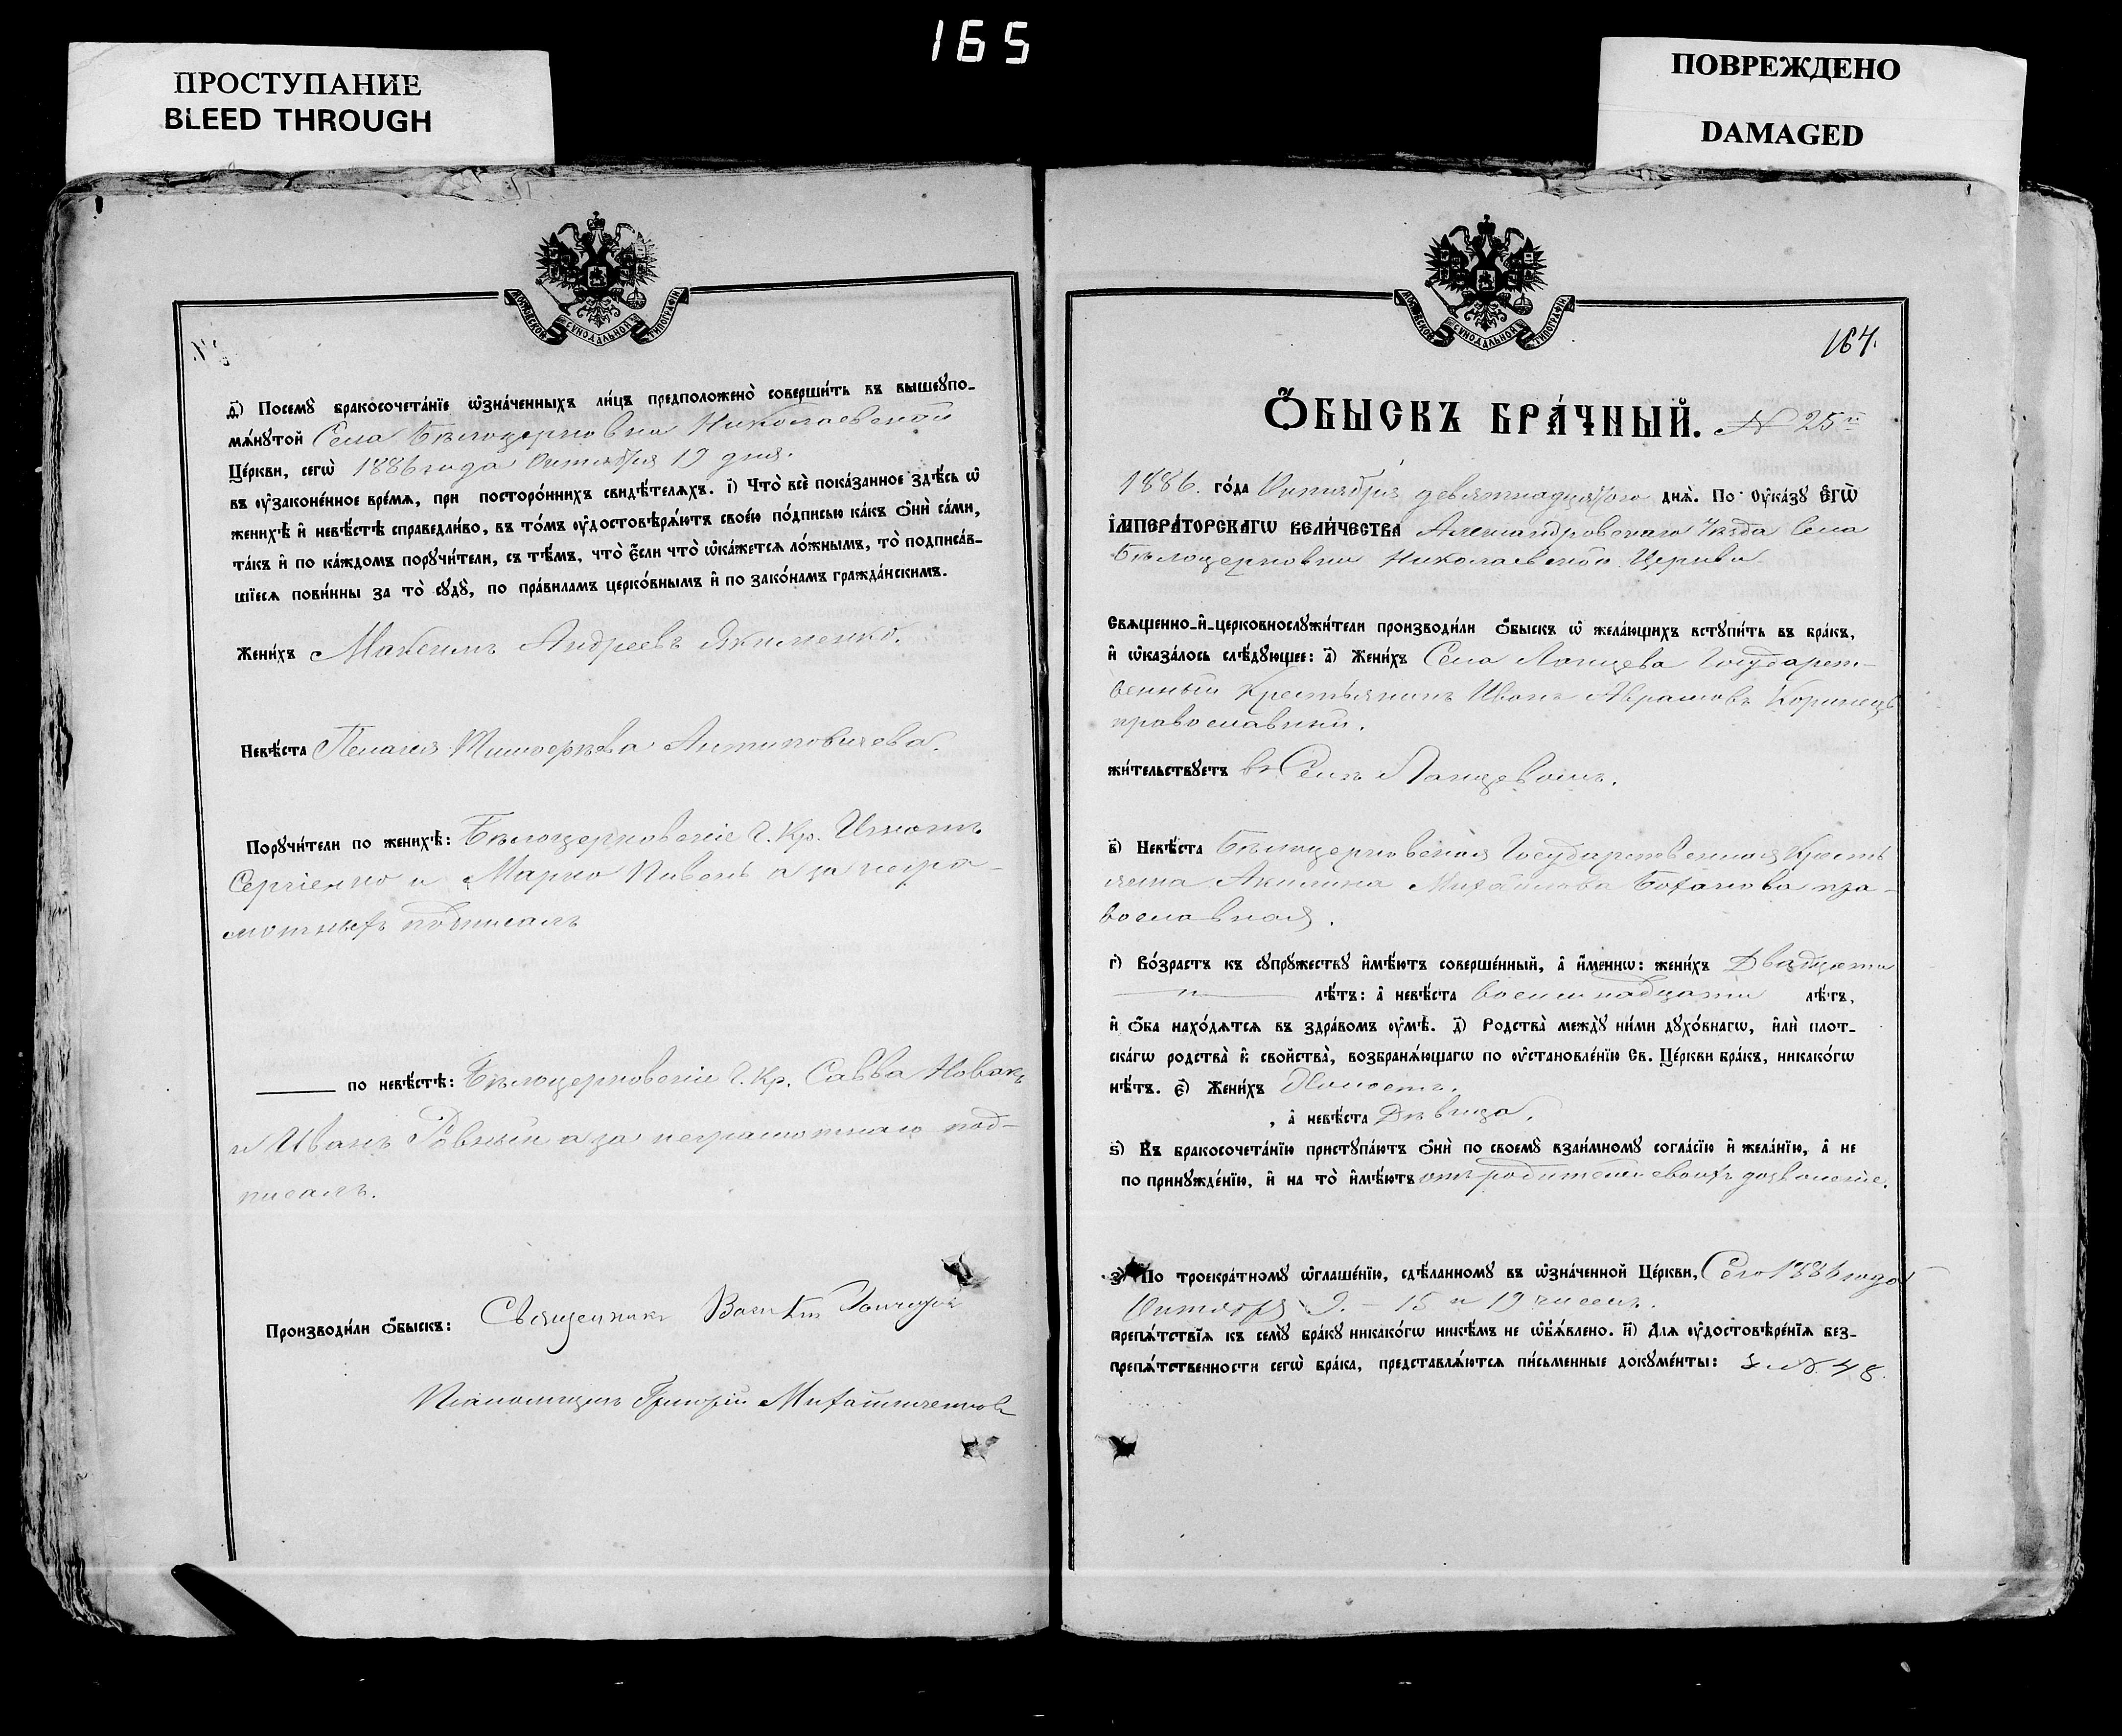 165
ПРОСТУПАНИЕ
BLEED THROUGH
ПОВРЕЖДЕНО
DAMAGED
МОСКОВСКОЙ СУНОДАЛЬНОЙ ТИПОГРАФІИ
д҃) Посемꙋ̀ бракосочета́нїе ѡ҆зна́ченныхъ ли́цъ предположено̀ соверши́ть въ вышеꙋпо-
мѧ́нꙋтой Села Бѣлоцерковки Николаевской
Це́ркви, сегѡ̀ 1886 года Октября 19 дня.
въ ᲂу҆законе́нное вре́мѧ, при посторо́ннихъ свидѣ́телѧхъ. і҃) Что̀ всѐ пока́занное здѣ́сь ѡ҆
женихѣ̀ и҆ невѣ́стѣ справедли́во, въ то́мъ ᲂу҆достовѣрѧ́ютъ свое́ю по́дписью ка́къ ѻ҆нѝ са́ми,
та́къ и҆ по ка́ждомъ порꙋчи́тели, съ тѣ́мъ, что̀ є҆́сли что̀ ѡ҆ка́жетсѧ ло́жнымъ, то̀ подписа́в-
шїесѧ пови́нны за то̀ сꙋдꙋ̀, по пра́виламъ церко́внымъ и҆ по зако́намъ гражда́нскимъ.
Жени́хъ Максимъ Андреевъ Якименко.
Невѣ́ста Пелагея Тимофеева Антиповичева.
Порꙋчи́тели по женихѣ̀: Бѣлоцерковскіе Г. Кр. Игнатъ
Сергіенко и Марко Пивень а за негра-
мотныхъ подписалъ
по невѣ́стѣ: Бѣлоцерковскіе Г. Кр. Савва Новакъ
и Иванъ Ровный а за неграмотнаго под-
писалъ.
Производи́ли ѻ҆́быскъ: Священникъ
Псаломщикъ Григорій Михайличенковъ
МОСКОВСКОЙ СУНОДАЛЬНОЙ ТИПОГРАФІИ
164.
Ѻ҆́БЫСКЪ БРА́ЧНЫЙ. № 25й
1886. го́да Октября девятнадцятого днѧ̀. По ᲂу҆ка́зꙋ Є҆ГѠ̀
І҆МПЕРА́ТОРСКАГѠ ВЕЛИ́ЧЕСТВА Александровскаго Уѣзда Села
Бѣлоцерковки Николаевской Церкви
Свѧще́нно-и҆-церковнослꙋжи́тели производи́ли ѻ҆́быскъ ѡ҆ жела́ющихъ встꙋпи́ть въ бра́къ,
и҆ ѡ҆каза́лось слѣ́дꙋющее: а҃) Жени́хъ Села Ланцева Государст-
венный Крестьянинъ Иванъ Аврамовъ Коринецъ
православный.
жи́тельствꙋетъ въ Селѣ Ланцевомъ.
в҃) Невѣ́ста Бѣлоцерковская Государственная Кресть
янка Акилина Михайлова Боханова пра-
вославная.
г҃) Во́зрастъ къ сꙋпрꙋ́жествꙋ и҆мѣ́ютъ соверше́нный, а҆ и҆́менно: жени́хъ Двадцати
лѣ́тъ: а҆ невѣ́ста восемнадцати лѣ́тъ,
и҆ ѻ҆́ба нахо́дѧтсѧ въ здра́вомъ ᲂу҆мѣ̀. д҃) Родства̀ междꙋ̀ ни́ми дꙋхо́внагѡ, и҆лѝ плот-
ска́гѡ родства̀ и҆ сво́йства̀, возбранѧ́ющагѡ по ᲂу҆становле́нїю Св. Це́ркви бра́къ, никако́гѡ
нѣ́тъ. є҃) Жени́хъ Холостъ.
, а҆ невѣ́ста Дѣвица.
ѕ҃) Къ бракосочета́нїю пристꙋпа́ютъ ѻ҆нѝ по своемꙋ̀ взаи́мномꙋ согла́сїю и҆ жела́нїю, а҆ не
по принꙋжде́нїю, и҆ на то̀ и҆мѣ́ютъ отъ родителей своихъ дозволеніе.
з҃) По троекра́тномꙋ ѡ҆глаше́нїю, сдѣ́ланномꙋ въ ѡ҆зна́ченной Це́ркви, Сего 1886 года
Октября 9. – 15 и 19 чиселъ.
препѧ́тствїѧ къ семꙋ̀ бра́кꙋ никако́гѡ никѣ́мъ не ѡ҆б̾ѧ́влено. и҃) Длѧ ᲂу҆достовѣре́нїѧ без-
препѧ́тственности сегѡ̀ бра́ка, представлѧ́ютсѧ пи́сьменные докꙋме́нты: